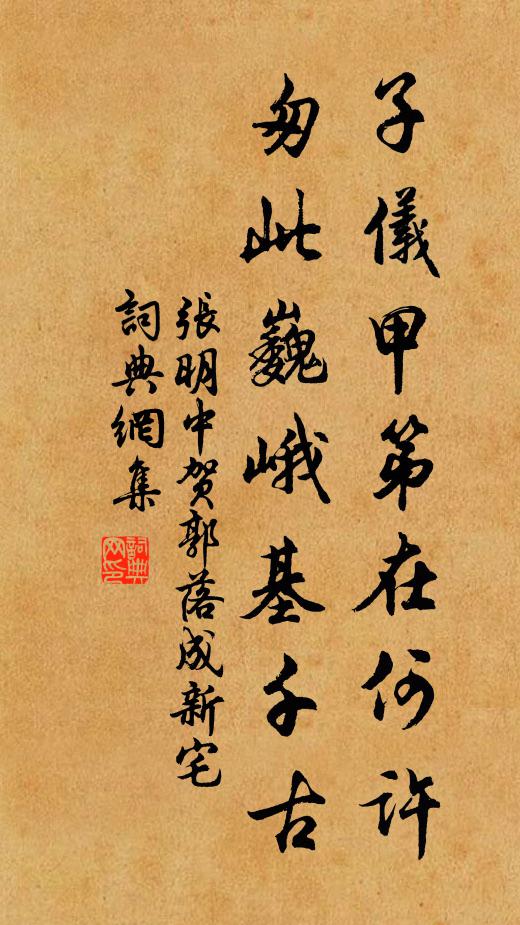 子儀甲第在何許
匆此巍峨基千古
張明中賀郭落成新宅
詞典網集
詞典网印